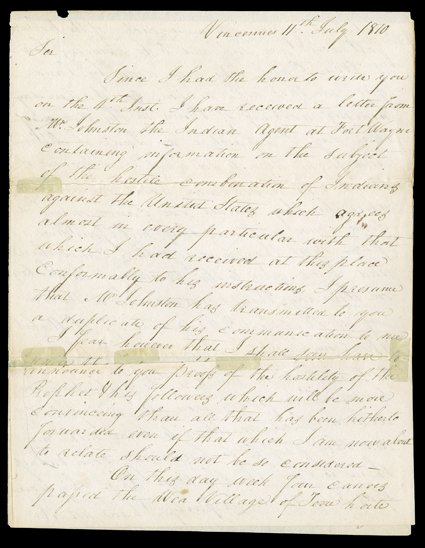 Vincennes 11th July 1810
Sir
Since I had the honor to write you
on the 4th Inst. I have received a letter from
Mr. Johnston the Indian Agent at Fort Wayne
Containing information on the subject
of the hostile combination of Indians
against the United States which agrees
almost in every particular with that
which I had received at this place
Conformably to his instructions I presume
that Mr Johnston has transmitted to you
a duplicate of his communication to me
I fear however that I shall soon have to
announce to you proofs of the hostility of the
Prophet & his followers which will be more
convincing than all that has been hitherto
forwarded even if that which I am now about
to relate should not be so considered—
On this day week four canoes
passed the Wea Village of Terre hute